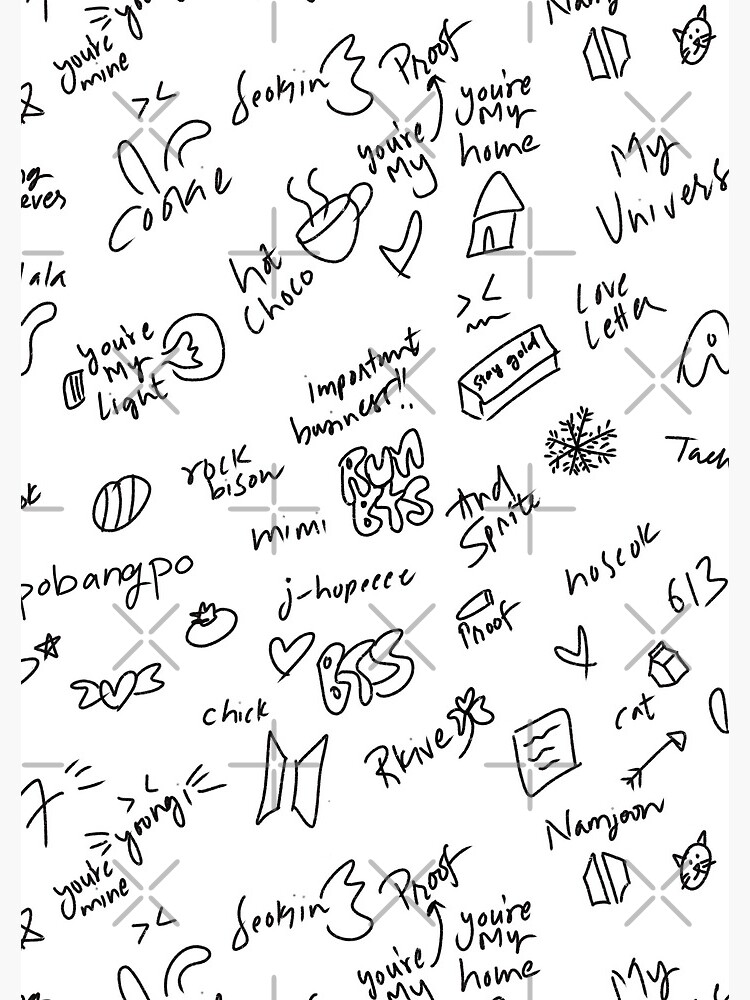 Namj
you're
mine
Seokjin
Proof
you're
My
home
you're
My
cookie
My
Univers
hot
choco
lala
Love
Letter
you're
My
Light
stay gold
Important
business!!
rock
bison
RUN
BTS
And
Sprite
Taeh
mimi
pobangpo
j-hopeeee
hoseok
613
Proof
BTS
chick
cat
Rkive
7
yoongi
Namjoon
you're
mine
Seokjin
Proof
you're
My
home
you're
My
My